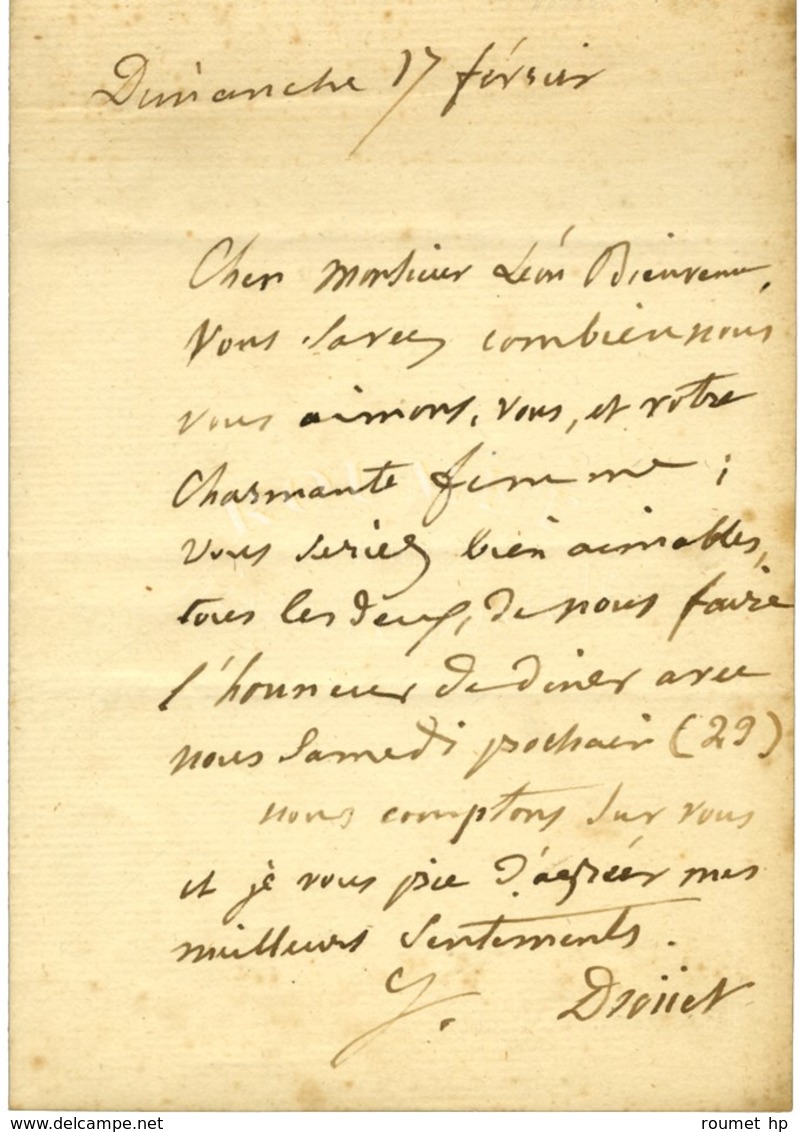 Dimanche 17 février
Cher Monsieur Léon Bienvenu,
Vous savez combien nous
vous aimons, vous, et votre
Charmante femme ;
vous seriez bien aimables,
tous les deux, de nous faire
l'honneur de diner avec
nous Samedi prochain (29)
nous comptons sur vous
et je vous prie d'agréer mes
meilleurs sentiments.
J. Drouet
www.delcampe.net
roumet hp